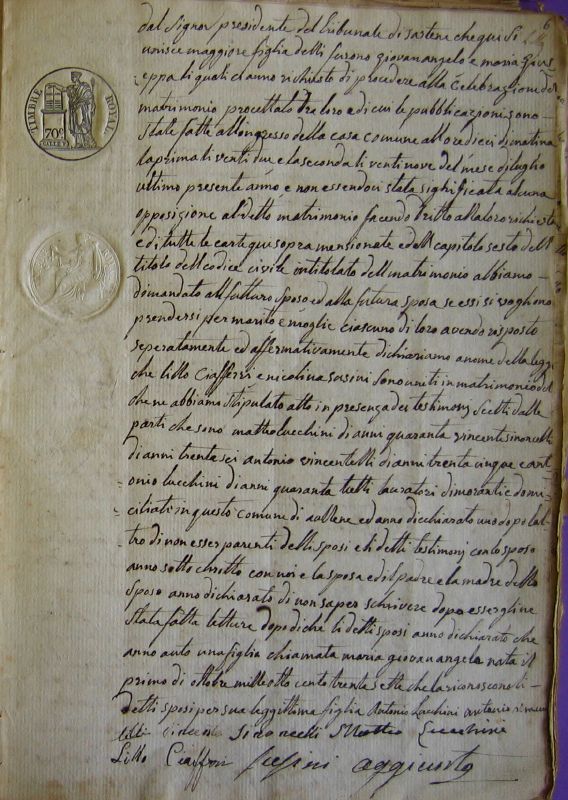 6
dal Signor presidente del tribunale di Sartene che qui si
unisce maggiore figlia delli furono giovan angelo e maria gius
eppa li quali ci anno richiesto di procedere alla celebrazione del
matrimonio procettato tra loro e di cui le pubblicazioni sono
state fatte all'ingresso della casa comune allore dieci di matina
la prima li venti due e la seconda li venti nove del mese di luglio
ultimo presente anno e non essendoci stata significata alcuna
opposizione al detto matrimonio facendo dritto alla loro richiesta
e di tutte le carte qui sopra mensionate e del capitolo sesto dell
titolo del codice civile intitolato del matrimonio abbiamo
dimandato al futturo sposo ed alla futura sposa se essi si vogliono
prendersi per marito e moglie ciascuno di loro avendo risposto
seperatamente ed affermativamente dichiariamo a nome della legge
che lillo Ciafferri e nicolina susini sono uniti in matrimonio del
che ne abbiamo stipulato atto in presenza dei testimonj scelti dalle
parti che sono matteo lucchini di anni quaranta vincenti
di anni trenta sei antonio vincentelli di anni trenta cinque e ant
onio lucchini di anni quaranta tutti lavratori dimoranti e domi
ciliati in questo comune di aullene ed anno dichiarato uno dopo lal
tro di non esser parenti delli sposi e li detti testimonj con lo sposo
anno sotto chritto con noi e la sposa ed il padre e la madre dello
sposo anno dichiarato di non saper schrivere dopo esserghine
stata fatta letture dopo di che li detti sposi anno dichiarato che
anno auto una figlia chiamata maria giovan angela nata il
primo di ottobre mille otto cento trenta sette che la riconoscono li
detti sposi per sua leggittima figlia Antonio Lucchini antonio vincen
telli Matteo Lucchine
Lillo Ciafferi susini aggiunto
TIMBRE ROYAL
70c